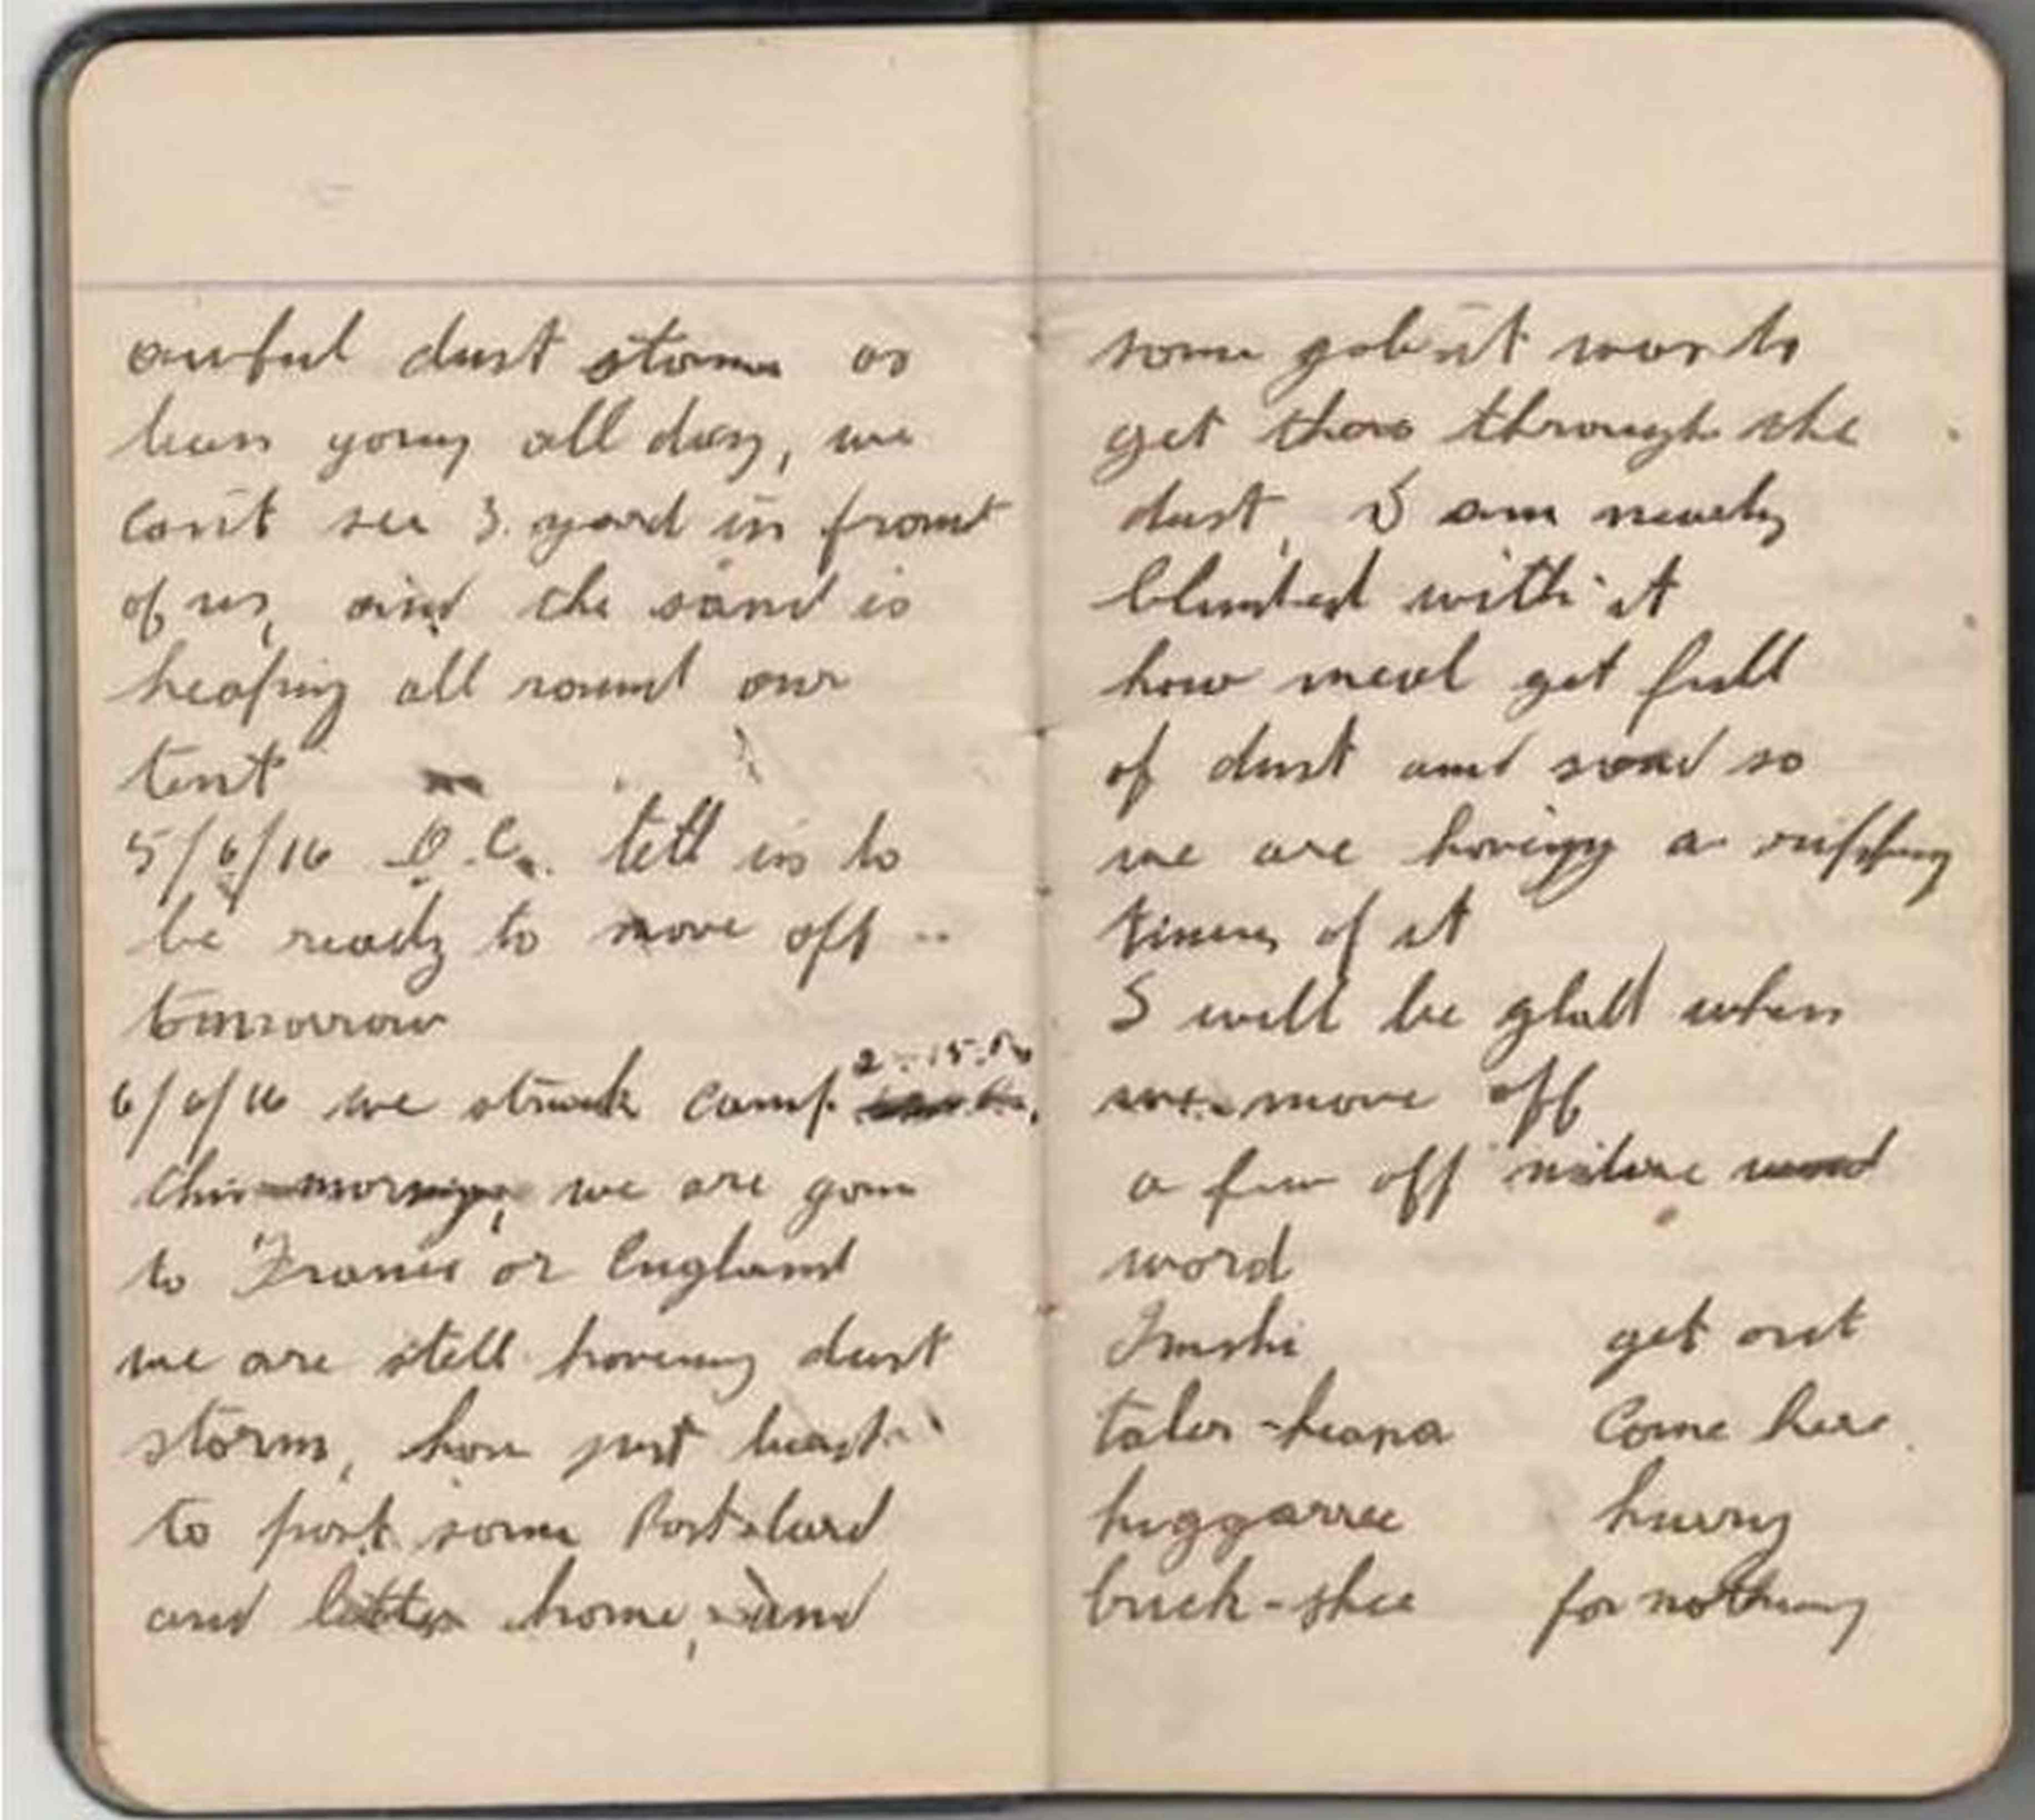 awful dust storm as
been going all day, we
can't see 3 yard in front
of us, and the sand is
heaping all round our
tent
5/6/16 O.C. tell us to
be ready to move off
tomorrow
6/6/16 we struck camp 2.15
this morning, we are goin
to France or England
we are still having dust
storm, have just
to post some Postcard
and letter home, and
some job it was to
get there through the
dust, I am nearly
blinded with it
how meal get full
of dust and sand so
we are having a ripping
times of it
I will be glad when
we move off
a few off native word
word
Imshi get out
taler-heana Come here
higgarree hurry
buck-shee for nothing